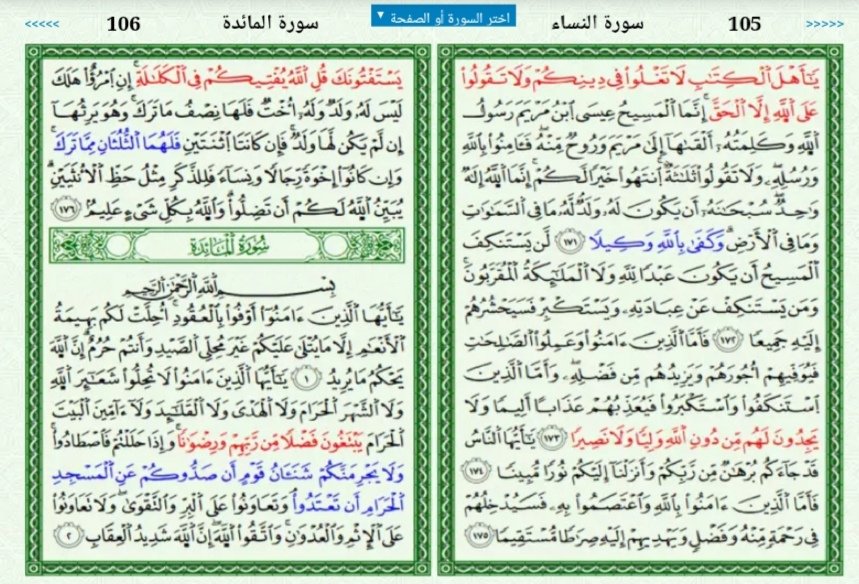 <<<<< 106 سورة المائدة اختر السورة أو الصفحة ▼ سورة النساء 105 >>>>>
يَٰٓأَهْلَ ٱلْكِتَٰبِ لَا تَغْلُوا۟ فِى دِينِكُمْ وَلَا تَقُولُوا۟
عَلَى ٱللَّهِ إِلَّا ٱلْحَقَّ ۚ إِنَّمَا ٱلْمَسِيحُ عِيسَى ٱبْنُ مَرْيَمَ رَسُولُ
ٱللَّهِ وَكَلِمَتُهُۥٓ أَلْقَىٰهَآ إِلَىٰ مَرْيَمَ وَرُوحٌ مِّنْهُ ۖ فَـَٔامِنُوا۟ بِٱللَّهِ
وَرُسُلِهِۦ ۖ وَلَا تَقُولُوا۟ ثَلَٰثَةٌ ۚ ٱنتَهُوا۟ خَيْرًا لَّكُمْ ۚ إِنَّمَا ٱللَّهُ إِلَٰهٌ
وَٰحِدٌ ۖ سُبْحَٰنَهُۥٓ أَن يَكُونَ لَهُۥ وَلَدٌ ۘ لَّهُۥ مَا فِى ٱلسَّمَٰوَٰتِ
وَمَا فِى ٱلْأَرْضِ ۗ وَكَفَىٰ بِٱللَّهِ وَكِيلًا ١٧١ لَّن يَسْتَنكِفَ
ٱلْمَسِيحُ أَن يَكُونَ عَبْدًا لِّلَّهِ وَلَا ٱلْمَلَٰٓئِكَةُ ٱلْمُقَرَّبُونَ ۚ
وَمَن يَسْتَنكِفْ عَنْ عِبَادَتِهِۦ وَيَسْتَكْبِرْ فَسَيَحْشُرُهُمْ
إِلَيْهِ جَمِيعًا ١٧٢ فَأَمَّا ٱلَّذِينَ ءَامَنُوا۟ وَعَمِلُوا۟ ٱلصَّٰلِحَٰتِ
فَيُوَفِّيهِمْ أُجُورَهُمْ وَيَزِيدُهُم مِّن فَضْلِهِۦ ۖ وَأَمَّا ٱلَّذِينَ
ٱسْتَنكَفُوا۟ وَٱسْتَكْبَرُوا۟ فَيُعَذِّبُهُمْ عَذَابًا أَلِيمًا وَلَا
يَجِدُونَ لَهُم مِّن دُونِ ٱللَّهِ وَلِيًّا وَلَا نَصِيرًا ١٧٣ يَٰٓأَيُّهَا ٱلنَّاسُ
قَدْ جَآءَكُم بُرْهَٰنٌ مِّن رَّبِّكُمْ وَأَنزَلْنَآ إِلَيْكُمْ نُورًا مُّبِينًا ١٧٤
فَأَمَّا ٱلَّذِينَ ءَامَنُوا۟ بِٱللَّهِ وَٱعْتَصَمُوا۟ بِهِۦ فَسَيُدْخِلُهُمْ
فِى رَحْمَةٍ مِّنْهُ وَفَضْلٍ وَيَهْدِيهِمْ إِلَيْهِ صِرَٰطًا مُّسْتَقِيمًا ١٧٥
يَسْتَفْتُونَكَ قُلِ ٱللَّهُ يُفْتِيكُمْ فِى ٱلْكَلَٰلَةِ ۚ إِنِ ٱمْرُؤٌا۟ هَلَكَ
لَيْسَ لَهُۥ وَلَدٌ وَلَهُۥٓ أُخْتٌ فَلَهَا نِصْفُ مَا تَرَكَ ۚ وَهُوَ يَرِثُهَآ
إِن لَّمْ يَكُن لَّهَا وَلَدٌ ۚ فَإِن كَانَتَا ٱثْنَتَيْنِ فَلَهُمَا ٱلثُّلُثَانِ مِمَّا تَرَكَ ۚ
وَإِن كَانُوٓا۟ إِخْوَةً رِّجَالًا وَنِسَآءً فَلِلذَّكَرِ مِثْلُ حَظِّ ٱلْأُنثَيَيْنِ ۗ
يُبَيِّنُ ٱللَّهُ لَكُمْ أَن تَضِلُّوا۟ ۗ وَٱللَّهُ بِكُلِّ شَىْءٍ عَلِيمٌۢ ١٧٦
سُورَةُ المَائدة
بِسْمِ ٱللَّهِ ٱلرَّحْمَٰنِ ٱلرَّحِيمِ
يَٰٓأَيُّهَا ٱلَّذِينَ ءَامَنُوٓا۟ أَوْفُوا۟ بِٱلْعُقُودِ ۚ أُحِلَّتْ لَكُم بَهِيمَةُ
ٱلْأَنْعَٰمِ إِلَّا مَا يُتْلَىٰ عَلَيْكُمْ غَيْرَ مُحِلِّى ٱلصَّيْدِ وَأَنتُمْ حُرُمٌ ۗ إِنَّ ٱللَّهَ
يَحْكُمُ مَا يُرِيدُ ١ يَٰٓأَيُّهَا ٱلَّذِينَ ءَامَنُوا۟ لَا تُحِلُّوا۟ شَعَٰٓئِرَ ٱللَّهِ
وَلَا ٱلشَّهْرَ ٱلْحَرَامَ وَلَا ٱلْهَدْىَ وَلَا ٱلْقَلَٰٓئِدَ وَلَآ ءَآمِّينَ ٱلْبَيْتَ
ٱلْحَرَامَ يَبْتَغُونَ فَضْلًا مِّن رَّبِّهِمْ وَرِضْوَٰنًا ۚ وَإِذَا حَلَلْتُمْ فَٱصْطَادُوا۟ ۚ
وَلَا يَجْرِمَنَّكُمْ شَنَـَٔانُ قَوْمٍ أَن صَدُّوكُمْ عَنِ ٱلْمَسْجِدِ
ٱلْحَرَامِ أَن تَعْتَدُوا۟ ۘ وَتَعَاوَنُوا۟ عَلَى ٱلْبِرِّ وَٱلتَّقْوَىٰ ۖ وَلَا تَعَاوَنُوا۟
عَلَى ٱلْإِثْمِ وَٱلْعُدْوَٰنِ ۚ وَٱتَّقُوا۟ ٱللَّهَ ۖ إِنَّ ٱللَّهَ شَدِيدُ ٱلْعِقَابِ ٢